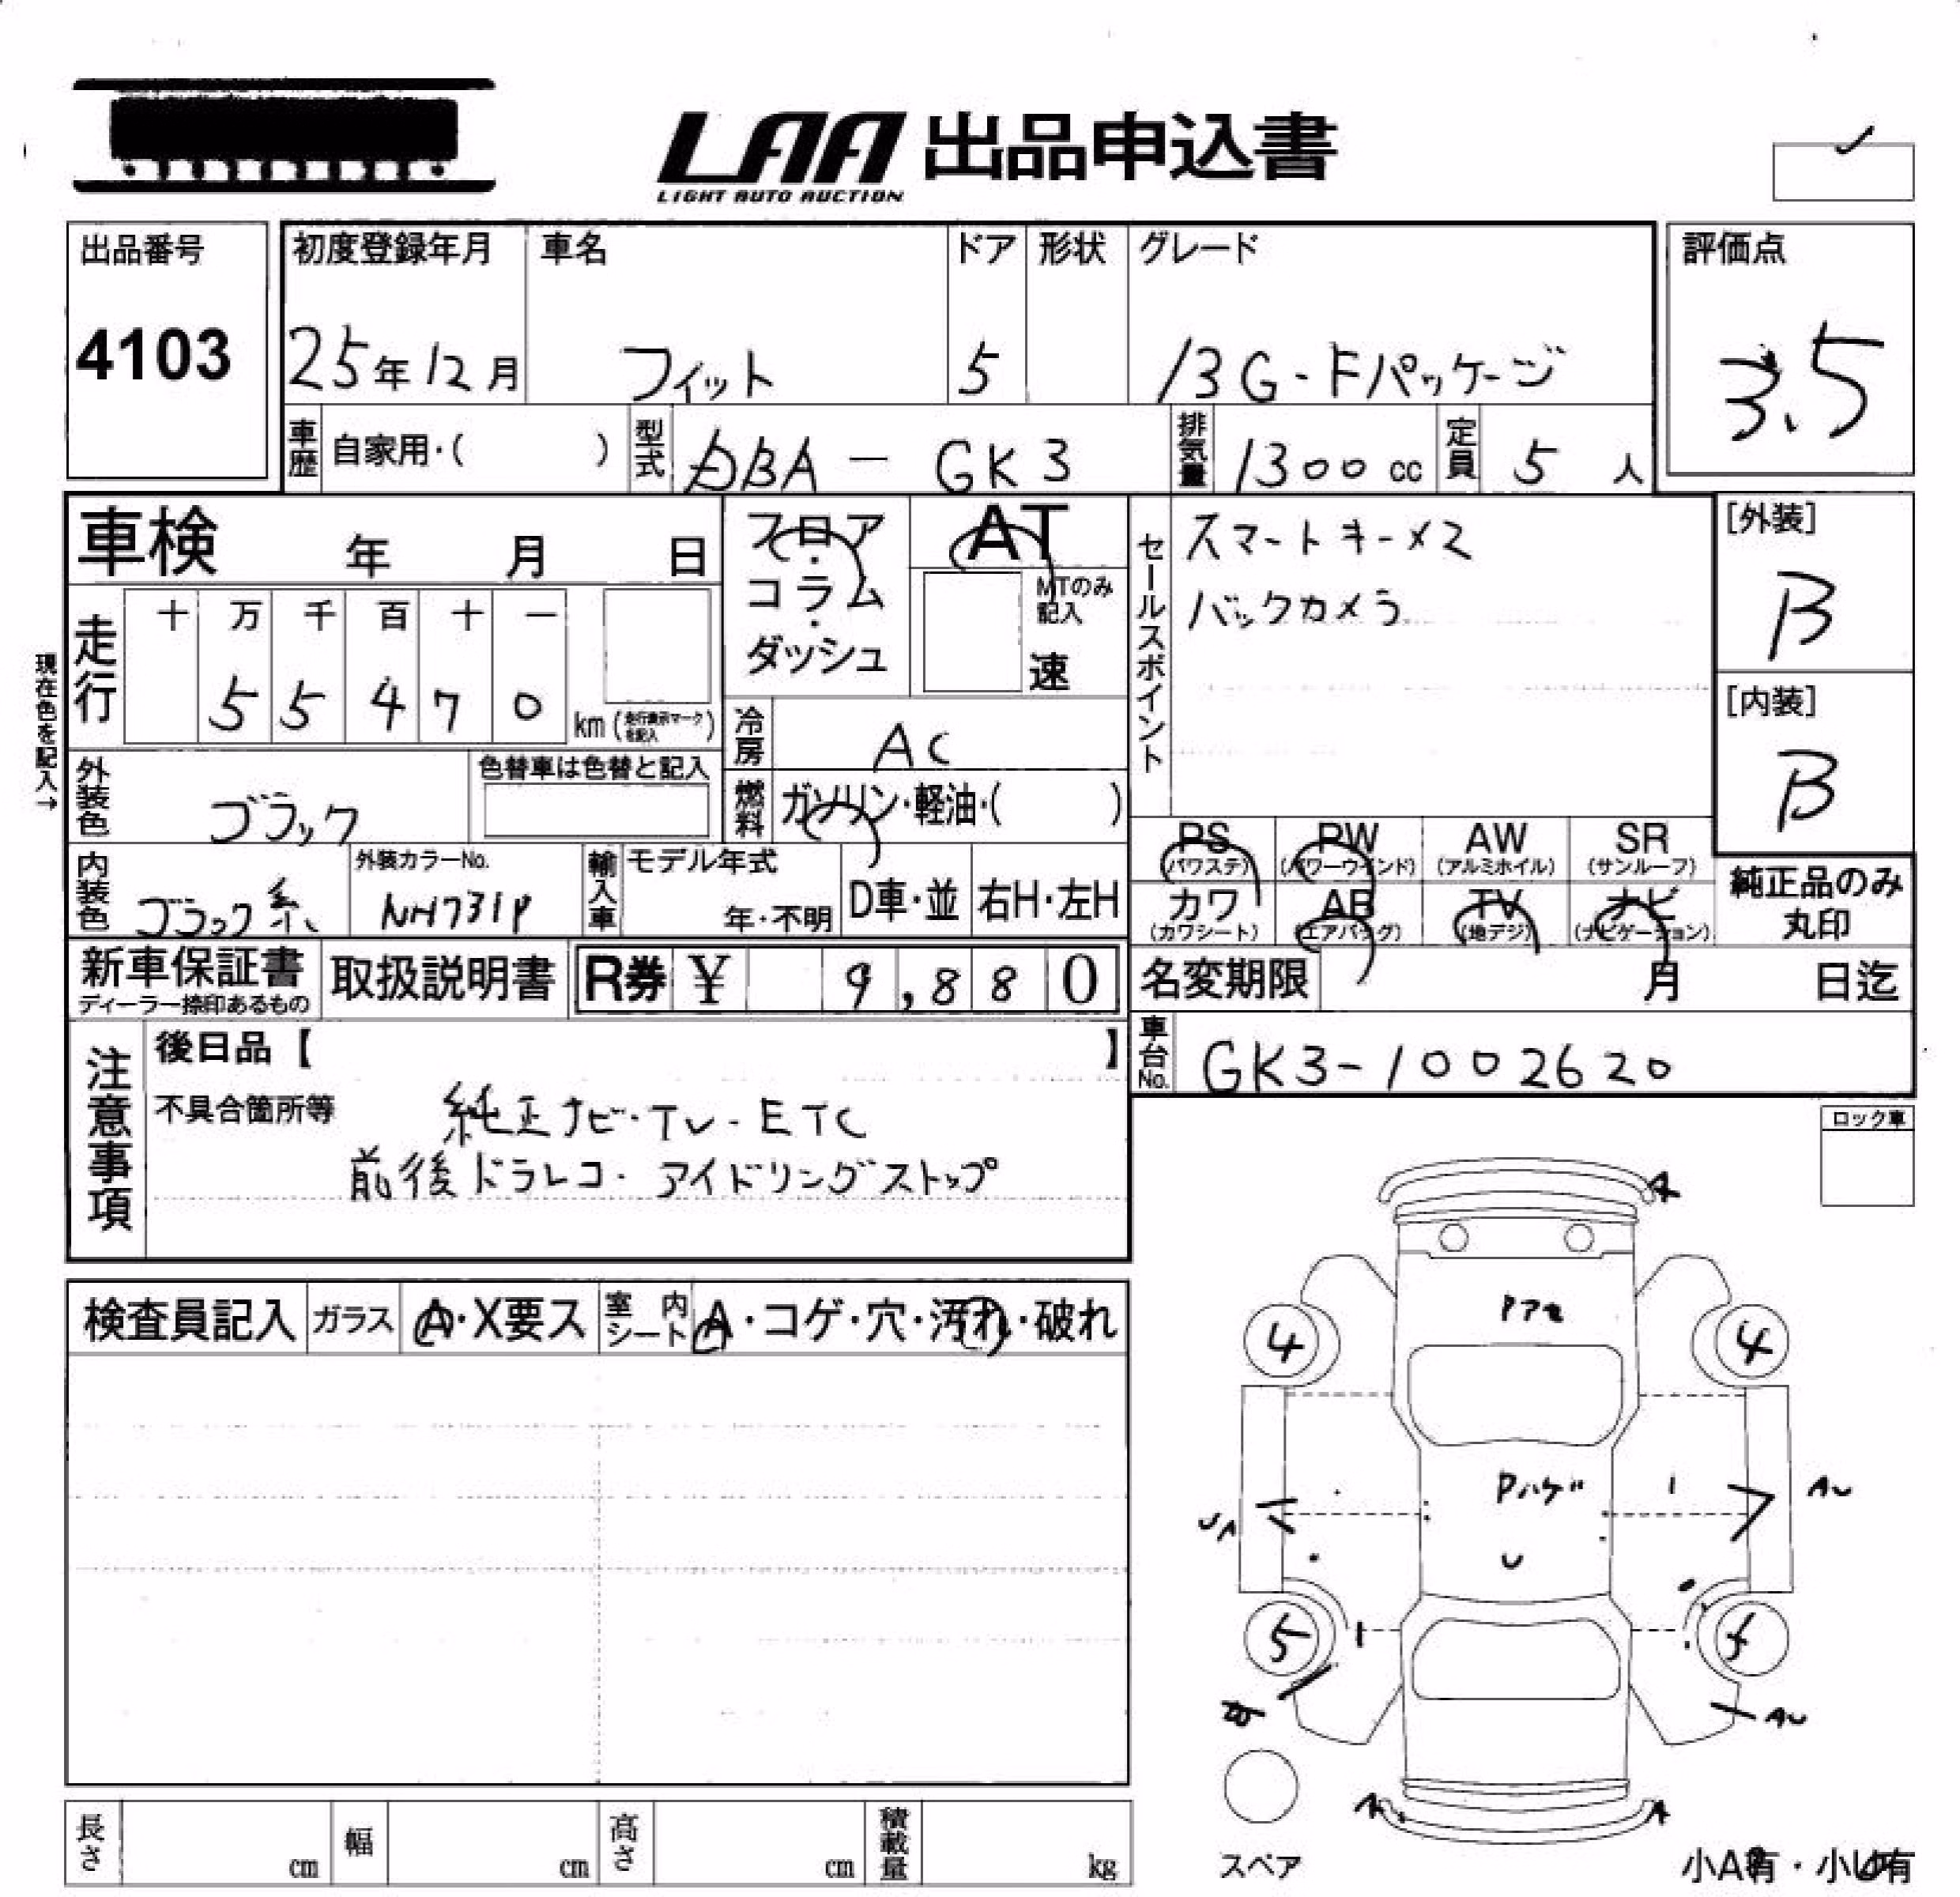 LAA 出品申込書
LIGHT AUTO AUCTION
出品番号
4103
初度登録年月
25年12月
車名
フィット
ドア
5
形状
グレード
13G-Fパッケージ
評価点
3.5
車歴 自家用・( )
型式 DBA - GK3
排気量 1300 cc
定員 5 人
車検 年 月 日
フロア・コラム・ダッシュ
AT
MTのみ記入
速
セールスポイント
スマートキー×2
バックカメラ
[外装]
B
[内装]
B
現在色を記入→
走行
十 万 千 百 十 一
5 5 4 7 0
km (走行表示マークを記入)
冷房 AC
燃料 ガソリン・軽油・( )
外装色 ブラック
色替車は色替と記入
内装色 ブラック系
外装カラーNo.
NH731P
輸入車 モデル年式
年・不明
D車・並
右H・左H
PS (パワステ)
PW (パワーウインド)
AW (アルミホイル)
SR (サンルーフ)
カワ (カワシート)
AB (エアバッグ)
TV (地デジ)
ナビ (ナビゲーション)
純正品のみ丸印
新車保証書
ディーラー捺印あるもの
取扱説明書
R券 ¥ 9,880
名変期限 月 日迄
車台No. GK3-1002620
注意事項
後日品【 】
不具合箇所等
純正ナビ・TV-ETC
前後ドラレコ・アイドリングストップ
ロック車
検査員記入
ガラス A・X要ス
室内シート A・コゲ・穴・汚れ・破れ
A
4
4
Pハゲ
U
AU
UA
5
AU
A
A
スペア
小A有・小U有
長さ cm
幅 cm
高さ cm
積載量 kg